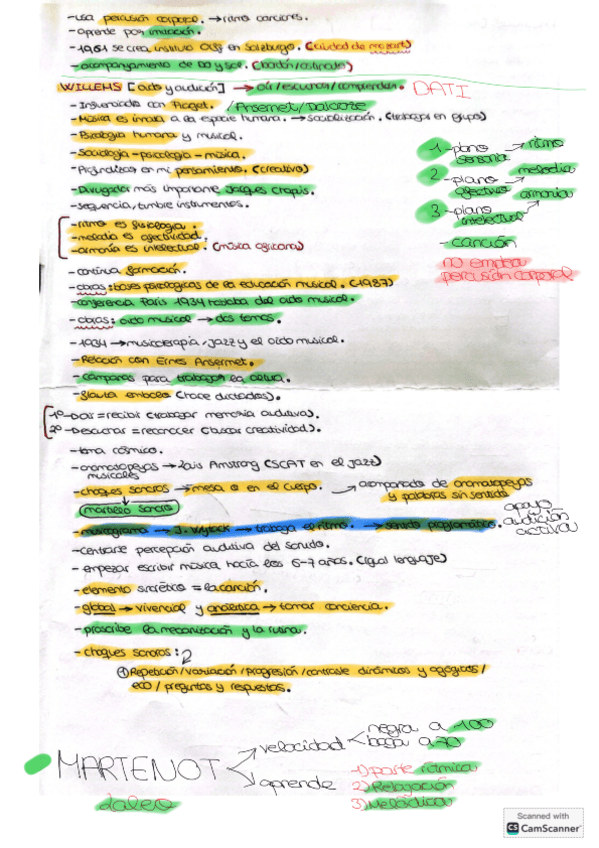 -usa percusión corporal. → ritmo canciones.
-aprende por imitación.
-1961 se crea, instituto Orff en Salzburgo. (ciudad de mozart)
-acompañamiento de DO y SOL. (bordón/ostinados)
WILLEMS [oído y audición] → oír/escuchar/comprender. DATI
-Influenciado con Piaget. /Ansermet/Dalcroze
-Música es innata a la especie humana. → socialización. (trabajar en grupos)
-Psicología humana y musical.
-Sociología-psicología-música.
-Profundizas en mi pensamiento. (creativo)
-Divulgador más importante Jacques Chapis.
-secuencia, timbre instrumentos.
1-plano sensorial → ritmo
2-plano afectivo → melodía
3-plano intelectual → armonía
-canción
no emplea percusión corporal
-ritmo es fisiología.
-melodía es afectividad.
-armonía es intelectual. (música africana)
-continua formación.
-obras: bases psicológicas de la educación musical. (1987)
-conferencia París 1934 hablaba del oído musical.
-obras: oído musical → dos tomos.
-1934 → musicoterapia, jazz y el oído musical.
-Relación con Ernes Ansermet.
-campanas para trabajar la altura.
-flauta embolo (hace dictados).
1º-Oír = recibir (trabajar memoria auditiva).
2º-Escuchar = reconocer (buscar creatividad).
-tema cósmico.
-onomatopeyas musicales → Louis Amstrong (SCAT en el jazz)
-choques sonoros → mesa o en el cuerpo. → acompañado de onomatopeyas y palabras sin sentido
martillo sonoro
-musicograma → J. Wytack → trabaja el ritmo. → sentido programático. apoyo audición activa
-centrarse percepción auditiva del sonido.
-empezar escribir música hacia los 6-7 años. (igual lenguaje)
-elemento sincrético = la canción.
-global → vivencial y analítica → tomar conciencia.
-proscribe la mecanización y la rutina.
-choques sonoros:
① Repetición/variación/progresión/contraste dinámicos y agógicos/
eco/preguntas y respuestas.
MARTENOT
velocidad
negra a 100
baja a 70
aprende
1) parte rítmica
2) Relajación
3) Melódica
Scanned with
CS CamScanner